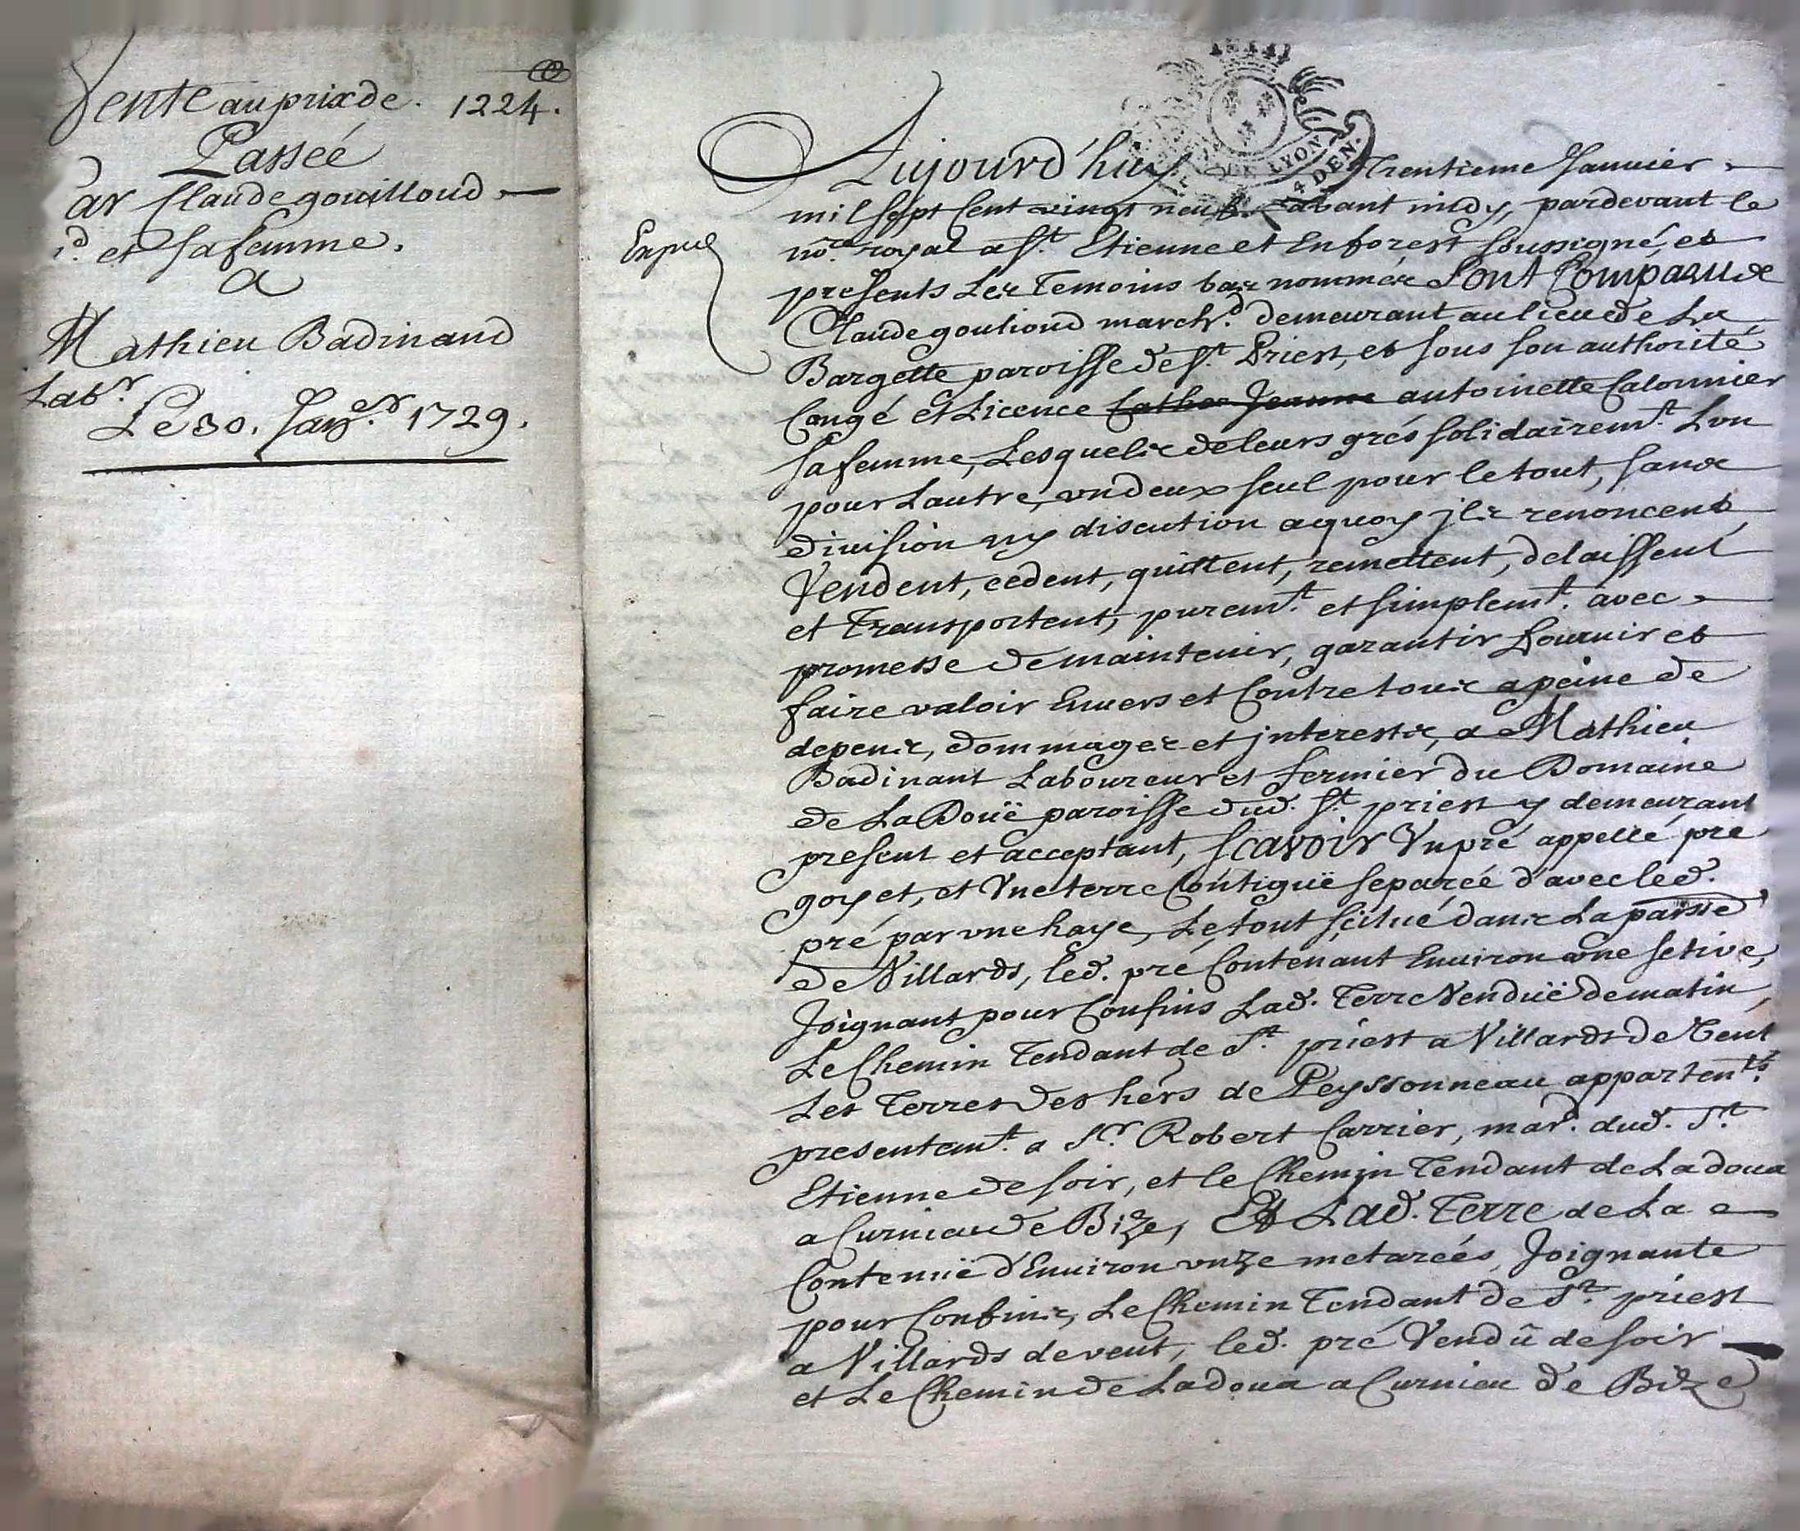 Vente au prix de. 1224.
Passeé
Par Claude gouilloud
d. et sa femme.
a
Mathieu Badinand
Labr.
Le 30. Janer. 1729.
LYON
4 DEN.
Expié
Aujourd'huy Trentieme Janvier
mil sept Cent vingt neuf. avant midy, pardevant le
nore. royal a St. Etienne et En forest soussigné, et
presents Les Temoins bas nommés Sont Comparus
Claude gouliond marchd. demeurant au lieu de La
Bargette paroisse de St. Priest, et sous son authorité
Congé et Licence Cathe Jeanne antoinette Calonnier
sa femme, Lesquels de leurs grés solidairemt. L'un
pour Lautre, un deux seul pour le tout, sans
division ny discution a quoy jls renoncent,
Vendent, cedent, quittent, remettent, delaissent
et Transportent, puremt. et simplemt. avec
promesse de maintenir, garantir fournir et
faire valoir Envers et Contre tous a peine de
depens, dommages et jnterests, a Mathieu
Badinant Laboureur et fermier du Domaine
de La Doüe paroisse dud. St. priest y demeurant
present et acceptant, Scavoir Un pré appellé pré
goyet, et Une terre Contiguë separeé d'avec led.
pré par une haye, Le tout scitué dans La parsse
de Villards, led. pré Contenant Environ une setive,
Joignant pour Confins Lad. Terre Venduë de matin,
Le Chemin Tendant de St. priest a Villards de Vent
Les Terres des hers de Peyssonneau appartents.
presentemt. a Sr. Robert Carrier, mard. dud. St.
Etienne de soir, et le Chemin Tendant de La doua
a Curnieu de Bize, Et Lad. Terre de La
Contenuë d'Environ unze metareés, Joignante
pour Confins, Le Chemin Tendant de St. priest
a Villards de vent, led. pré Vendû de soir
et Le Chemin de La doua a Curnieu de Bize